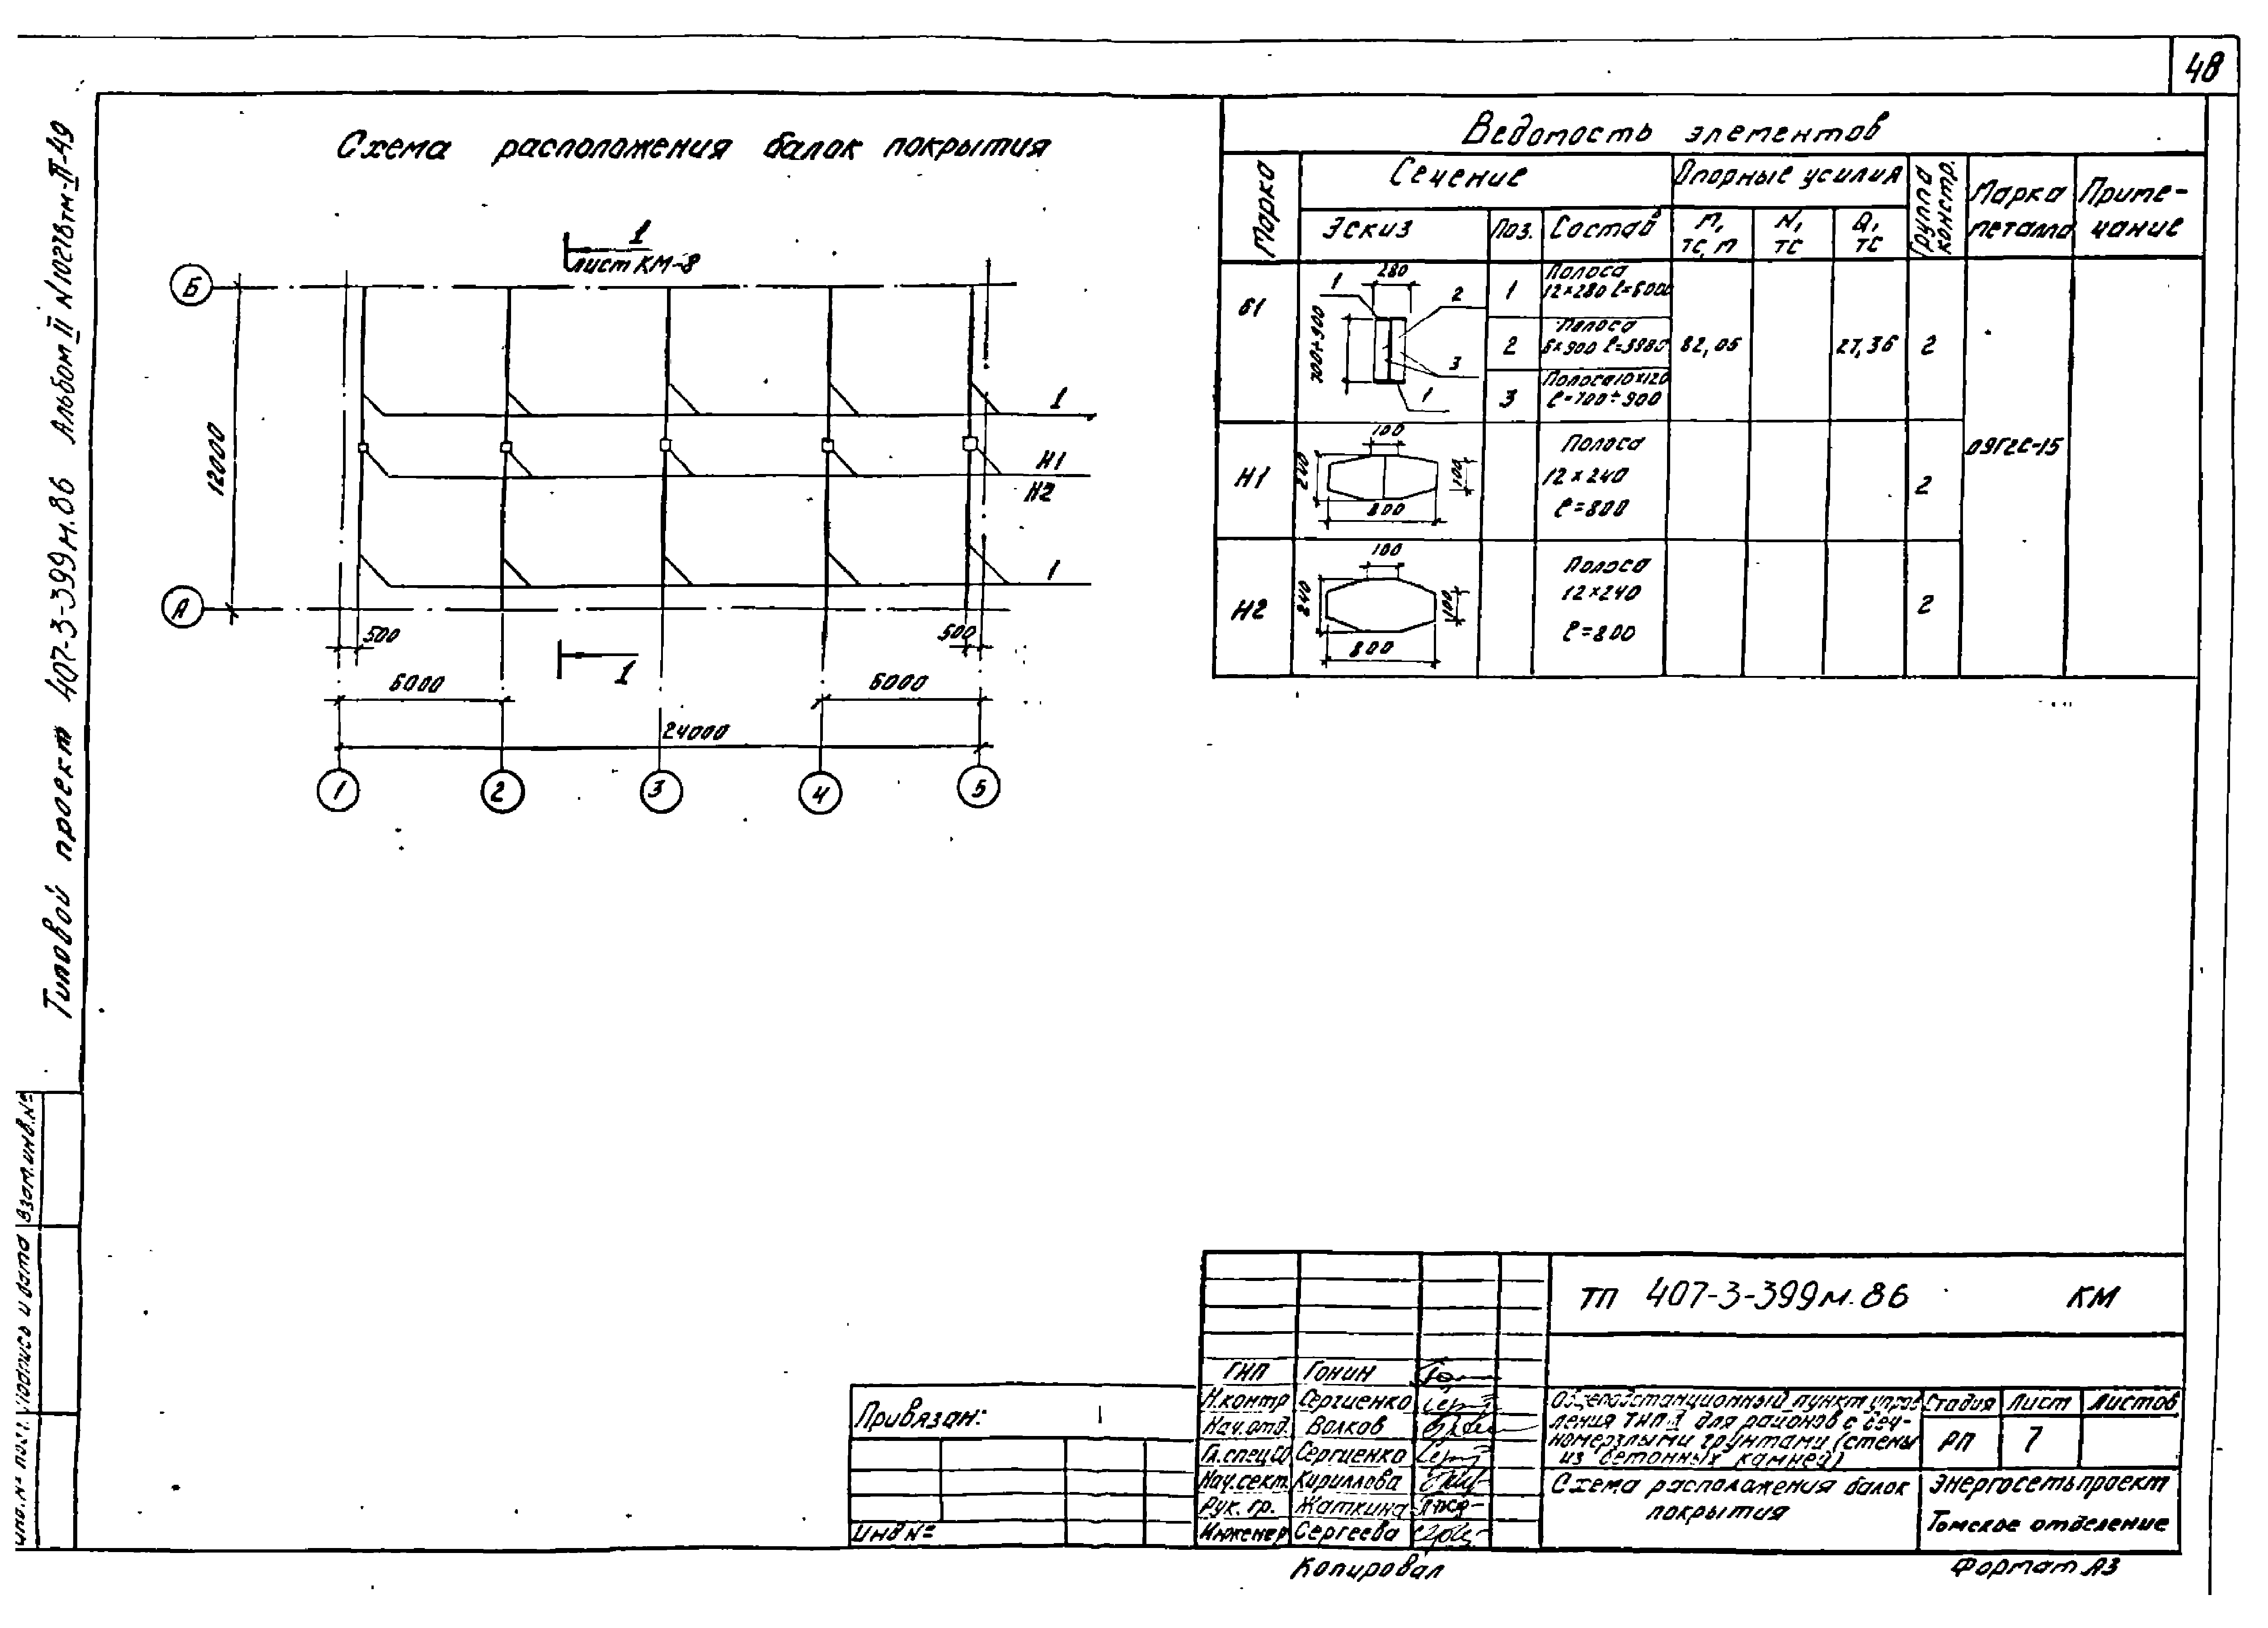 48
Типовой проект 407-3-399м.86 Альбом II N10278тм-II-49
Схема расположения балок покрытия
1
лист КМ-8
Б
12000
1
Н1
Н2
1
А
500
500
1
6000
6000
24000
1 2 3 4 5
Ведомость элементов
Марка
Сечение
Опорные усилия
Группа констр.
Марка металла
Приме-
чание
Эскиз
Поз.
Состав
М, тс,м
N, тс
Q, тс
Б1
280
1
2
3
1
700÷900
1
Полоса
12×280 ℓ=6000
2
Полоса
6×900 ℓ=5980
82,05
27,36
2
3
Полоса 10×120
ℓ=700÷900
09Г2С-15
Н1
100
240
100
800
Полоса
12×240
ℓ=800
2
Н2
100
240
100
800
Полоса
12×240
ℓ=800
2
Взам.инв.№
Подпись и дата
Инв.№ подл.
Привязан:
Инв №
ТП 407-3-399м.86 КМ
ГИП Гонин
Н.контр Сергиенко
Нач.отд. Волков
Гл.спец Сергиенко
Нач.сект. Кириллова
Рук. гр. Жаткина
Инженер Сергеева
Общеподстанционный пункт управ
ления тип II для районов с веч-
номерзлыми грунтами (стены
из бетонных камней)
Стадия Лист Листов
РП 7
Схема расположения балок
покрытия
Энергосетьпроект
Томское отделение
Копировал
Формат А3